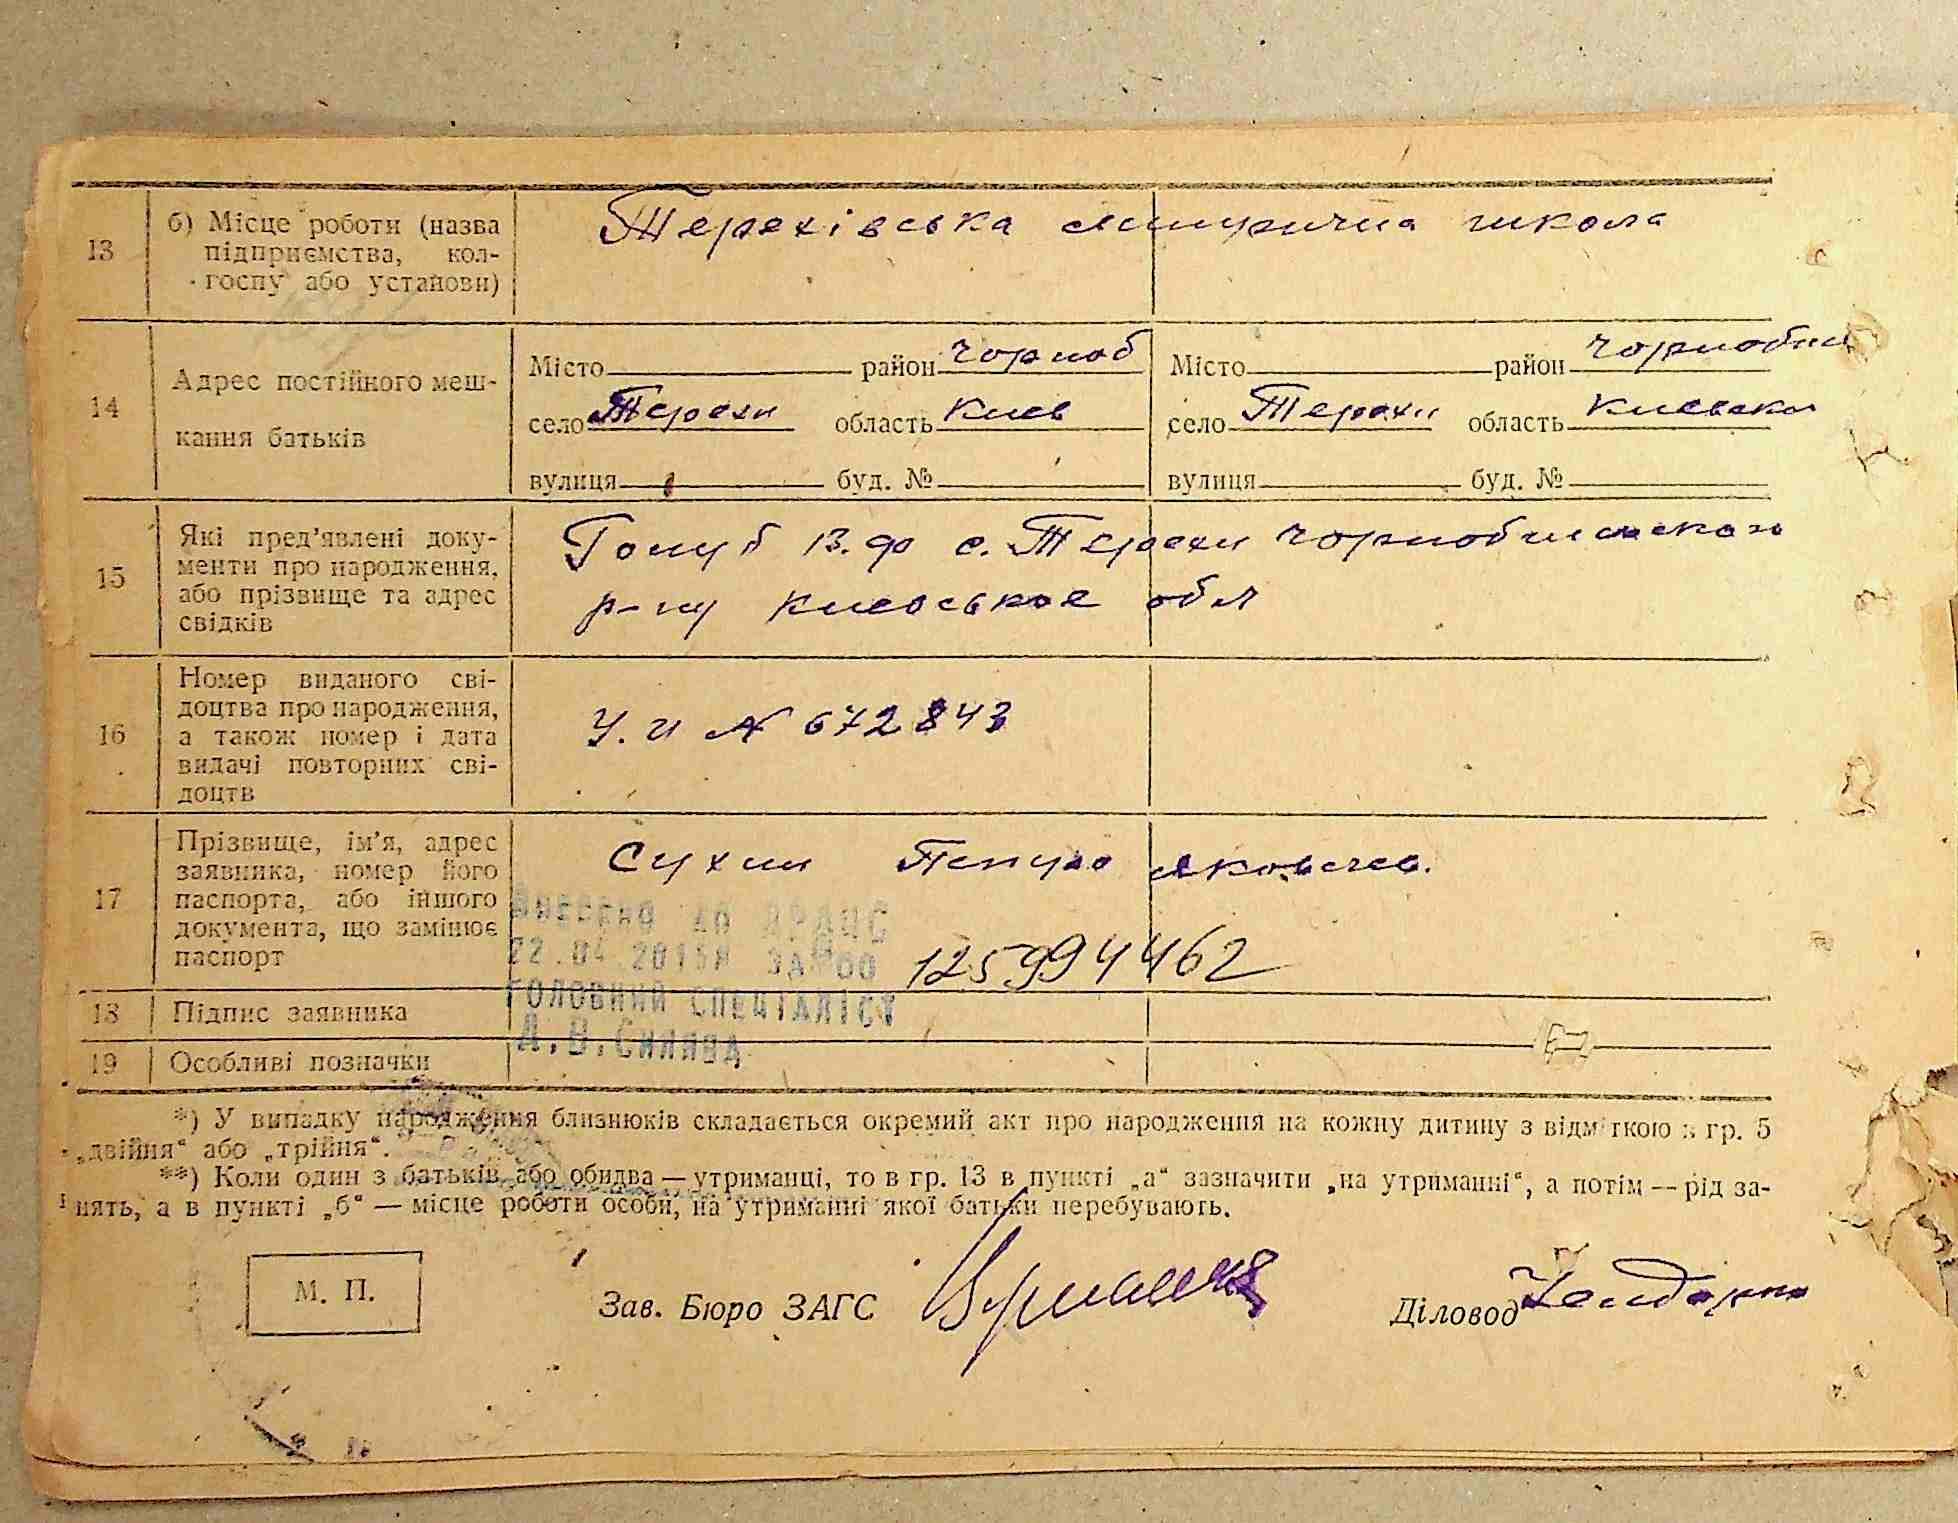 13
б) Місце роботи (назва
підприємства, кол-
госпу або установи)
Терехівська школа
14
Адрес постійного меш-
кання батьків
Місто район Чорноб
село Терехи область Киев
вулиця буд. №
Місто район Чорнобил
село Терехи область Киевска
вулиця буд. №
15
Які пред’явлені доку-
менти про народження,
або прізвище та адрес
свідків
Голуб с. Терехи
р-ну обл
16
Номер виданого сві-
доцтва про народження,
а також номер і дата
видачі повторних сві-
доцтв
N 672843
17
Прізвище, ім’я, адрес
заявника, номер його
паспорта, або іншого
документа, що замінює
паспорт
Сухин
Внесено до ДРАЦС
22.04.2015р за № 00 125994462
головний спеціаліст
18
Підпис заявника
19
Особливі позначки
*) У випадку народження близнюків складається окремий акт про народження на кожну дитину з відміткою в гр. 5
„двійня“ або „трійня“.
**) Коли один з батьків або обидва — утриманці, то в гр. 13 в пункті „а“ зазначити „на утриманні“, а потім — рід за-
нять, а в пункті „б“ — місце роботи особи, на утриманні якої батьки перебувають.
М. П.
Зав. Бюро ЗАГС
Діловод